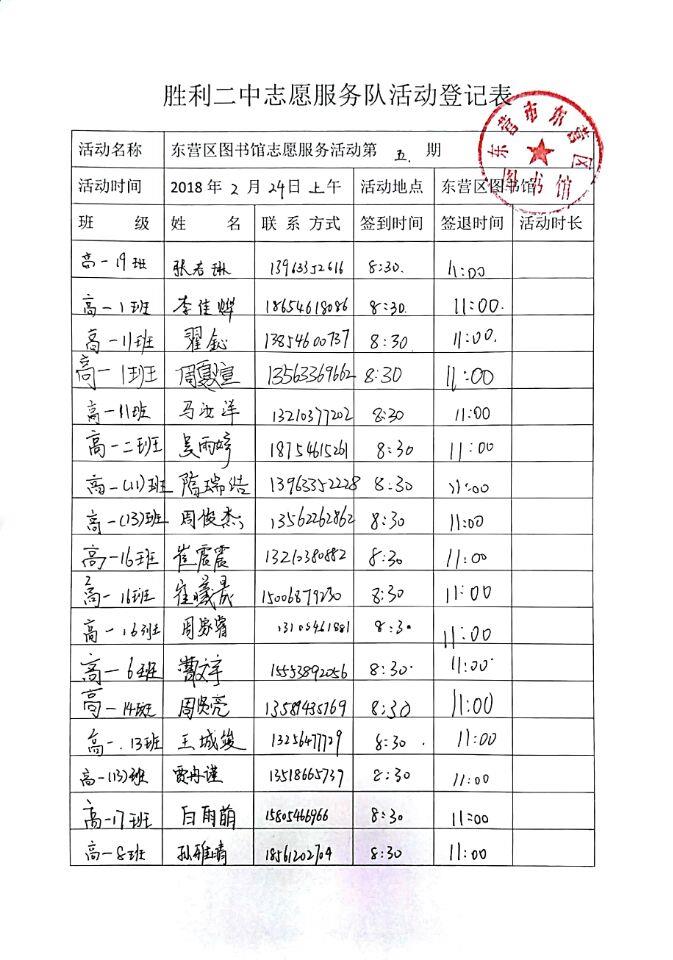 胜利二中志愿服务队活动登记表
东营市东营区图书馆
活动名称 东营区图书馆志愿服务活动第 五 期
活动时间 2018年2月24日上午 活动地点 东营区图书馆
班 级 姓 名 联 系 方式 签到时间 签退时间 活动时长
高一19班 张若琳 13963352616 8:30. 11:00
高一1班 李佳烨 18654618086 8:30. 11:00.
高一11班 翟鈊 13854600737 8:30 11:00.
高一1班 周夏萱 13563369662 8:30 11:00
高一11班 马汝洋 13210377202 8:30 11:00
高一二班 吴雨婷 18754615261 8:30 11:00
高一(11)班 隋瑞浩 13963352228 8:30 11:00
高一(13)班 周俊杰 13562262862 8:30 11:00
高一16班 崔震震 13210380882 8:30 11:00
高一16班 崔曦晨 15006879230 8:30 11:00
高一16班 周 睿 13105461881 8:30 11:00
高一6班 文宇 15553892056 8:30 11:00
高一14班 周贤亮 13589435769 8:30 11:00
高一.13班 王城俊 13256477729 8:30. 11:00
高一(13)班 贾冉谨 13518665737 8:30 11:00
高一17班 白雨萌 15805466966 8:30 11:00
高一8班 孙雅晴 18561202704 8:30 11:00